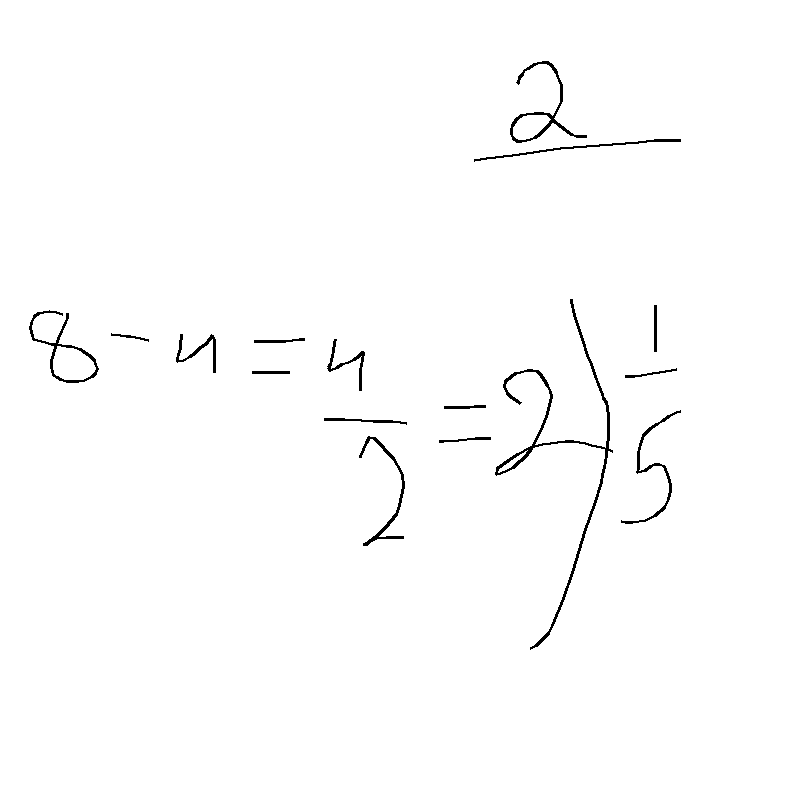 2
8 - 4 = 4/2 = 2 ) 1/5